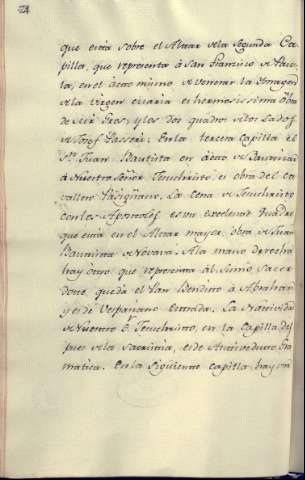 24
que está sobre el Altar de la Segunda Ca-
pilla, que representa à San Francisco de Pau-
la, en el acto mismo de venerar la Imagen
de la Virgen Maria es hermosissima Obra
de Ciro Feos; y los dos quadros de los Lados
de Josef Passeri; En la tercera Capilla el
Sn. Juan Bautista en acto de Bautizar
à Nuestro Señor Jesuchristo es obra del Ca-
vallero Pasiñano. La Cena de Jesuchristo
con los Apostoles es un excelente Quadro
que está en el Altar mayor, obra de Juan
Bautista de Novara. A la mano derecha
hay otro que representa al Sumo Sacer
dote, que da el Pan Bendito à Abrahan
y es de Vespasiano Estrada. La Natividad
de Nuestro S. Jesuchristo, en la Capilla des
pues de la Sacristia, es de Antiveduto Gra
matica. En la siguiente capilla hay un